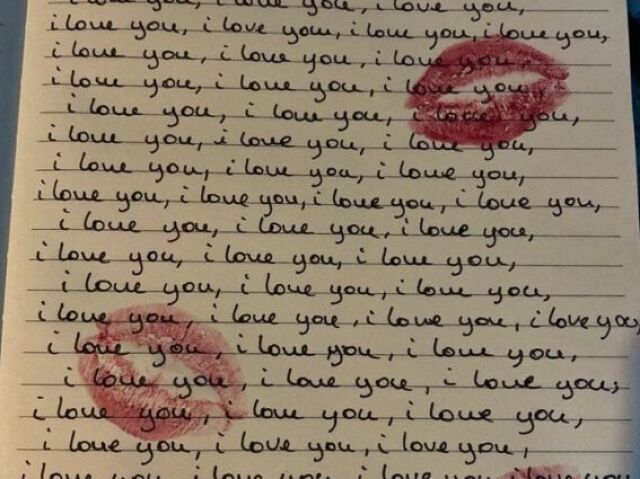 i love you, i love you, i love you,
i love you, i love you, i love you, i love you,
i love you, i love you, i love you,
i love you, i love you, i love you,
i love you, i love you, i love you,
i love you, i love you, i love you,
i love you, i love you, i love you,
i love you, i love you, i love you, i love you,
i love you, i love you, i love you,
i love you, i love you, i love you,
i love you, i love you, i love you,
i love you, i love you, i love you, i love you,
i love you, i love you, i love you,
i love you, i love you, i love you,
i love you, i love you, i love you,
i love you, i love you, i love you,
i love you, i love you, i love you, i love you